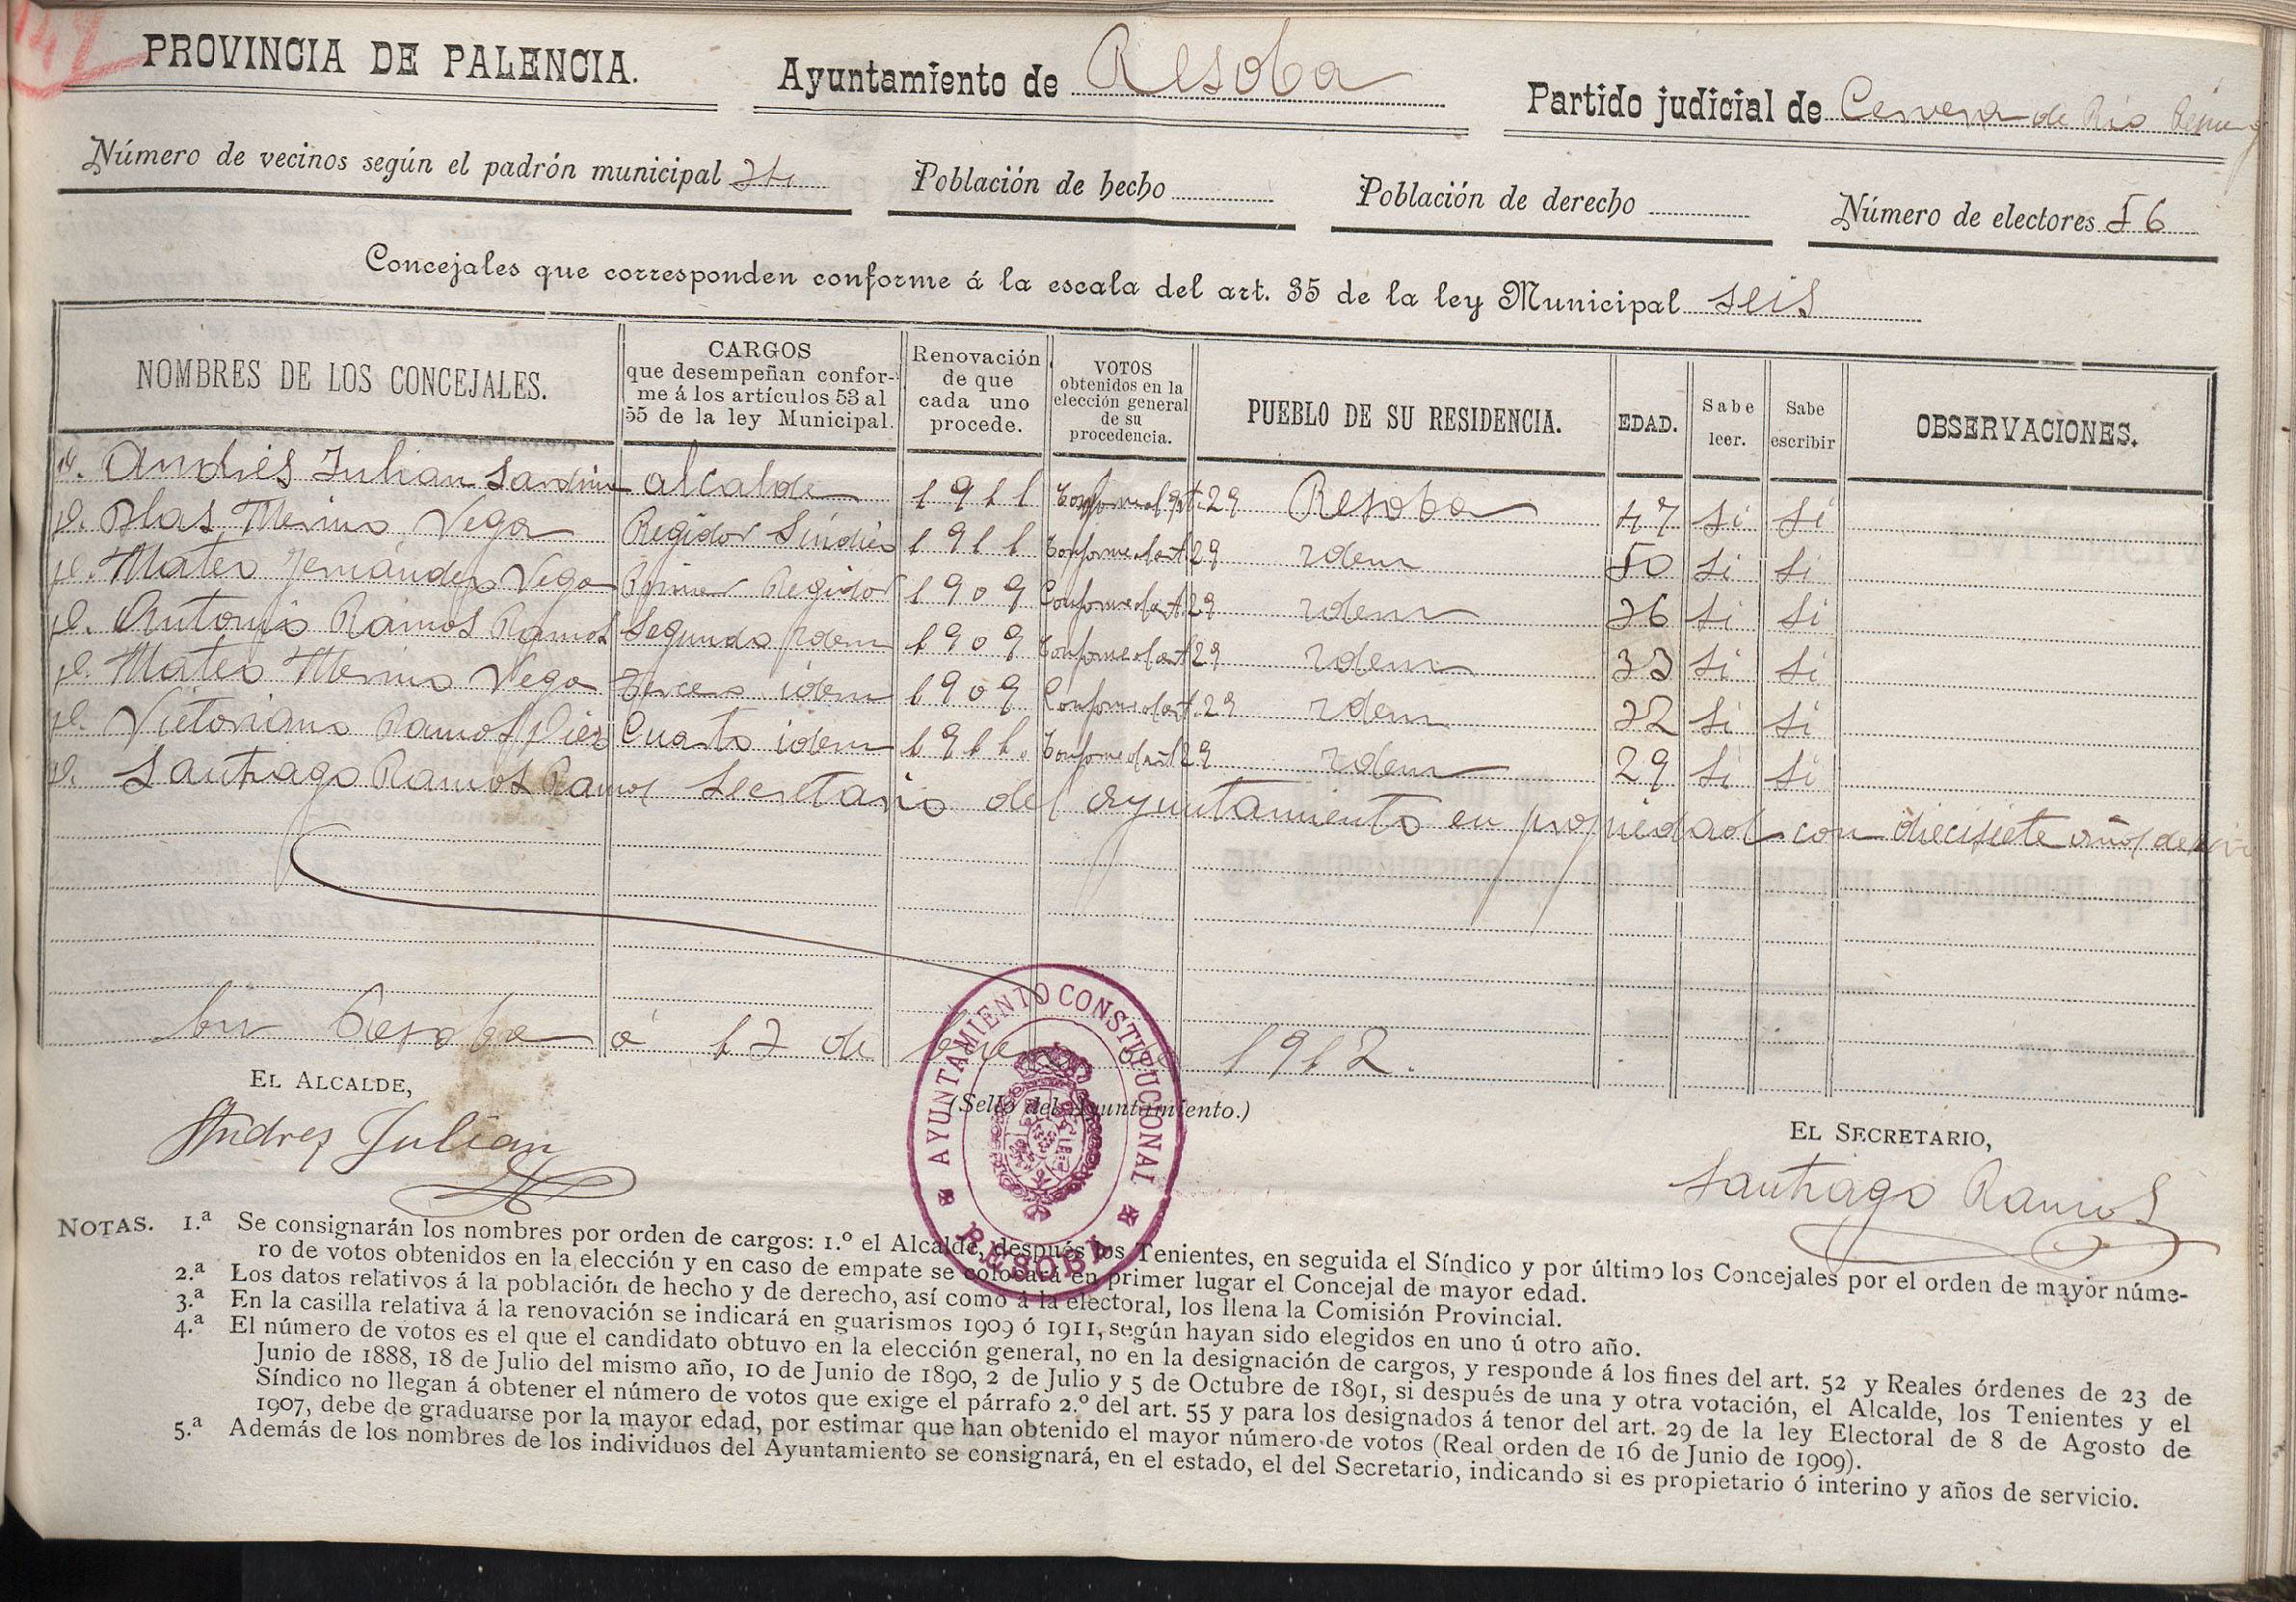 147
PROVINCIA DE PALENCIA.
Ayuntamiento de Resoba
Partido judicial de Cervera de Río
Número de vecinos según el padrón municipal
Población de hecho
Población de derecho
Número de electores 56
Concejales que corresponden conforme á la escala del art. 35 de la ley Municipal seis
NOMBRES DE LOS CONCEJALES.
CARGOS
que desempeñan confor-
me á los artículos 53 al
55 de la ley Municipal.
Renovación
de que
cada uno
procede.
VOTOS
obtenidos en la
elección general
de su
procedencia.
PUEBLO DE SU RESIDENCIA.
EDAD.
Sabe
leer.
Sabe
escribir
OBSERVACIONES.
Andrés Julian alcalde 1911 Conforme al art. 29 Resoba 47 si si
Blas Merino Vega Regidor Síndico 1911 Conforme al art 29 idem 50 si si
Mateo Fernández Vega Primer Regidor 1909 Conforme al art 29 idem 36 si si
Antonio Ramos Ramos Segundo idem 1909 Conforme al art 29 idem 33 si si
Mateo Merino Vega Tercero idem 1909 Conforme al art. 29 idem 32 si si
Victoriano Ramos Diez Cuarto idem 1911. Conforme al art 29 idem 29 si si
Santiago Ramos Ramos Secretario del Ayuntamiento en propiedad con diecisiete años de
En Resoba á 13 de Enero de 1912.
EL ALCALDE,
(Sello del Ayuntamiento.)
AYUNTAMIENTO CONSTITUCIONAL
RESOBA
EL SECRETARIO,
Andrez Julian
Santiago Ramos
NOTAS. 1.ª Se consignarán los nombres por orden de cargos: 1.º el Alcalde, después los Tenientes, en seguida el Síndico y por último los Concejales por el orden de mayor núme-
ro de votos obtenidos en la elección y en caso de empate se colocará en primer lugar el Concejal de mayor edad.
2.ª Los datos relativos á la población de hecho y de derecho, así como á la electoral, los llena la Comisión Provincial.
3.ª En la casilla relativa á la renovación se indicará en guarismos 1909 ó 1911, según hayan sido elegidos en uno ú otro año.
4.ª El número de votos es el que el candidato obtuvo en la elección general, no en la designación de cargos, y responde á los fines del art. 52 y Reales órdenes de 23 de
Junio de 1888, 18 de Julio del mismo año, 10 de Junio de 1890, 2 de Julio y 5 de Octubre de 1891, si después de una y otra votación, el Alcalde, los Tenientes y el
Síndico no llegan á obtener el número de votos que exige el párrafo 2.º del art. 55 y para los designados á tenor del art. 29 de la ley Electoral de 8 de Agosto de
1907, debe de graduarse por la mayor edad, por estimar que han obtenido el mayor número de votos (Real orden de 16 de Junio de 1909).
5.ª Además de los nombres de los individuos del Ayuntamiento se consignará, en el estado, el del Secretario, indicando si es propietario ó interino y años de servicio.